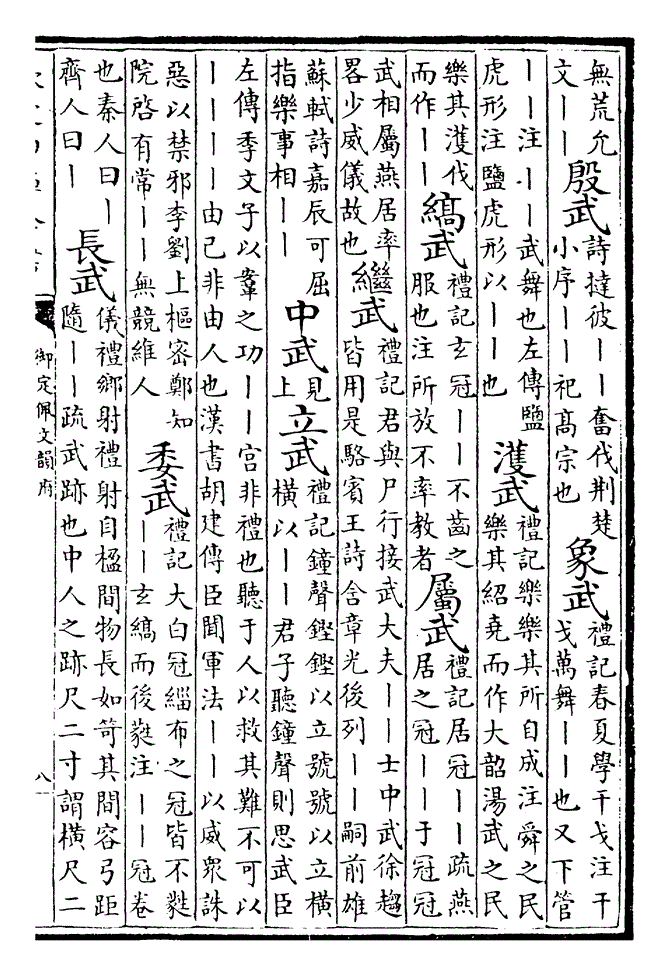 無荒允
文丨丨
殷武
詩撻彼丨丨奮伐荆楚
小序丨丨祀髙宗也
象武
禮記春夏學干戈注干
戈萬舞丨丨也又下管
丨丨注丨丨武舞也左傳鹽
虎形注鹽虎形以丨丨也
濩武
禮記樂樂其所自成注舜之民
樂其紹堯而作大韶湯武之民
樂其濩伐
而作丨丨
縞武
禮記玄冠丨丨不齒之
服也注所放不率教者
屬武
禮記居冠丨丨疏燕
居之冠丨丨于冠冠
武相屬燕居率
畧少威儀故也
繼武
禮記君與尸行接武大夫丨丨士中武徐趨
皆用是駱賓王詩含章光後列丨丨嗣前雄
蘇軾詩嘉辰可屈
指樂事相丨丨
中武
見
上
立武
禮記鐘聲鏗鏗以立號號以立橫
橫以丨丨君子聽鐘聲則思武臣
左傳季文子以鞌之功丨丨宮非禮也聽于人以救其難不可以
丨丨丨丨由己非由人也漢書胡建傳臣聞軍法丨丨以威衆誅
惡以禁邪李劉上樞密鄭知
院啓有常丨丨無競維人
委武
禮記大白冠緇布之冠皆不蕤
丨丨玄縞而後蕤注丨丨冠卷
也秦人曰丨
齊人曰丨
長武
儀禮鄉射禮射自楹間物長如笴其間容弓距
隨丨丨疏武跡也中人之跡尺二寸謂橫尺二
御定佩文韻府
八